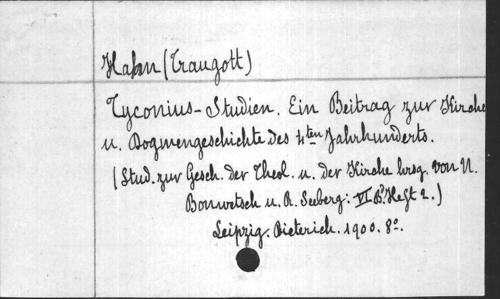 Hahn (Traugott)
Tyconius-Studien. Ein Beitrag zur Kirche
u. Dogmengeschichte des 4ten Jahrhunderts.
(Stud. zur Gesch. der Theol. u. der Kirche hrsg. von N.
Bonwetsch u. R. Seeberg: VI Bd Heft 2.)
Leipzig. Dieterich. 1900. 8°.